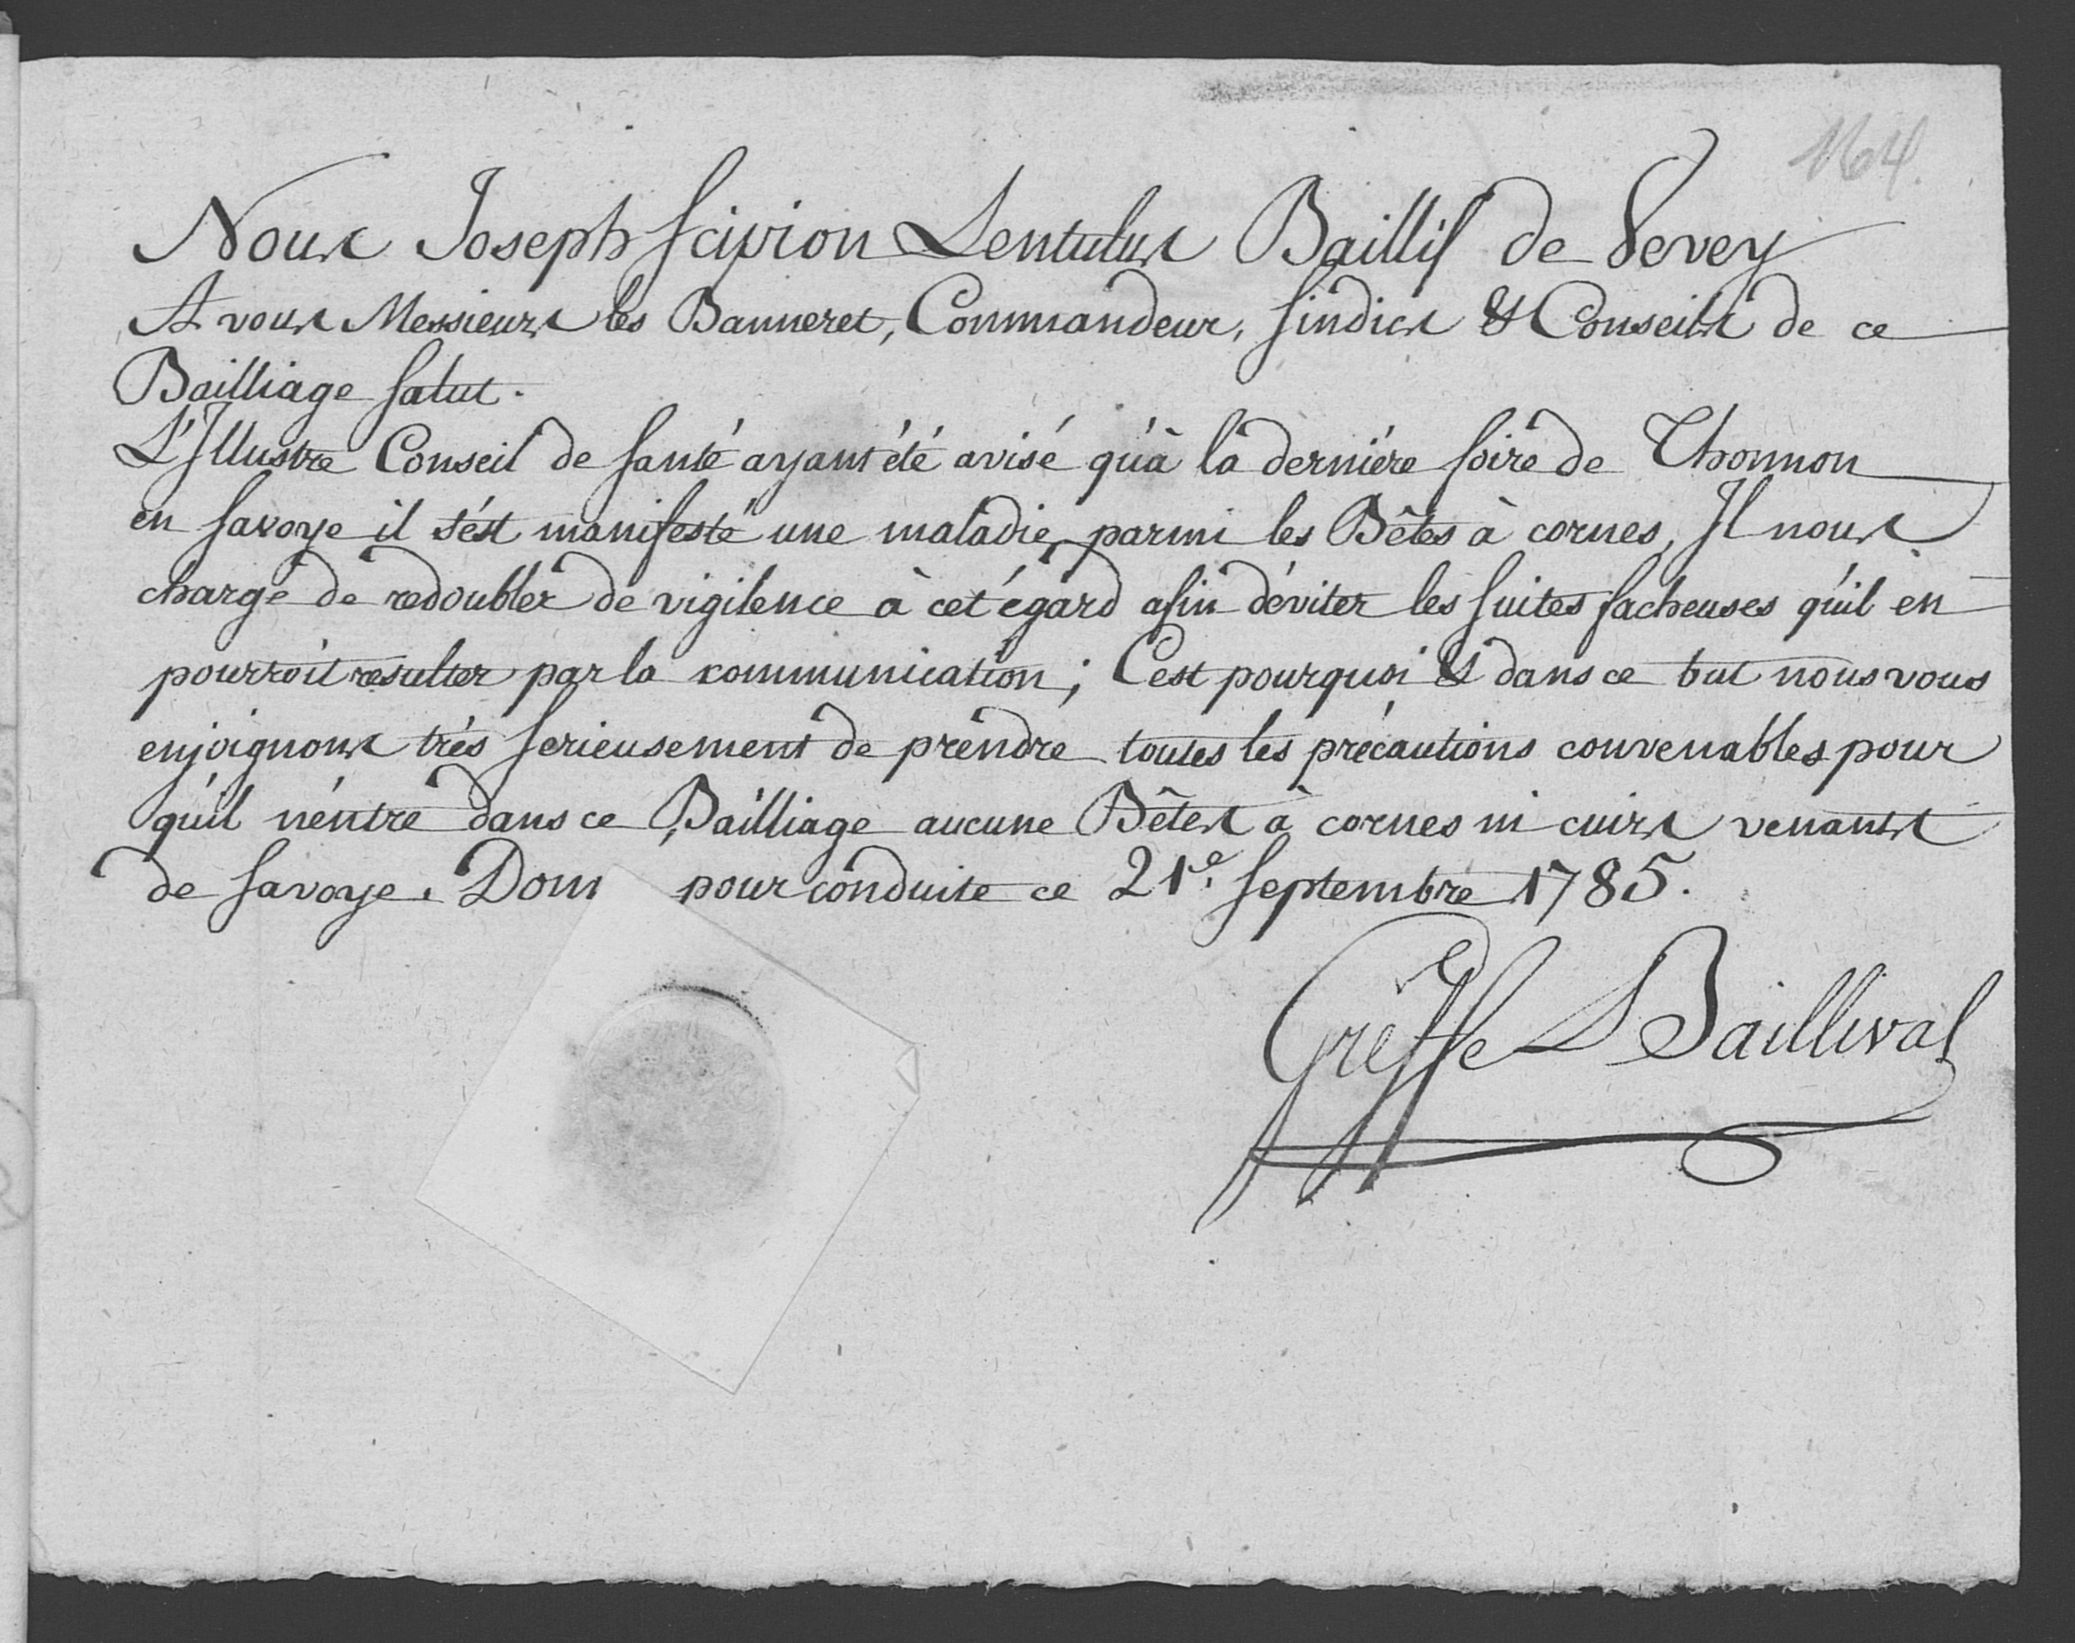 164.
Nous Joseph Scipion Lentulus Baillif de Vevey
A vous Messieurs les Banneret, Commandeur, Sindics & Conseils de ce
Bailliage Salut.
L'Illustre Conseil de Santé ayant été avisé qu'à la derniére foire de Thonnon
en Savoye il s'ést manifesté une maladie parmi les Bêtes à cornes, Il nous
charge de redoubler de vigilence à cet égard afin d'éviter les Suites facheuses qu'il en
pourroit resulter par la communication; C'est pourquoi & dans ce but nous vous
enjoignons trés Serieusement de prendre toutes les précautions convenables pour
qu'il n'éntre dans ce Bailliage aucune Bêtes à cornes ni cuirs venants
de Savoye. Donné pour conduite ce 21e. Septembre 1785.
Greffe Baillival